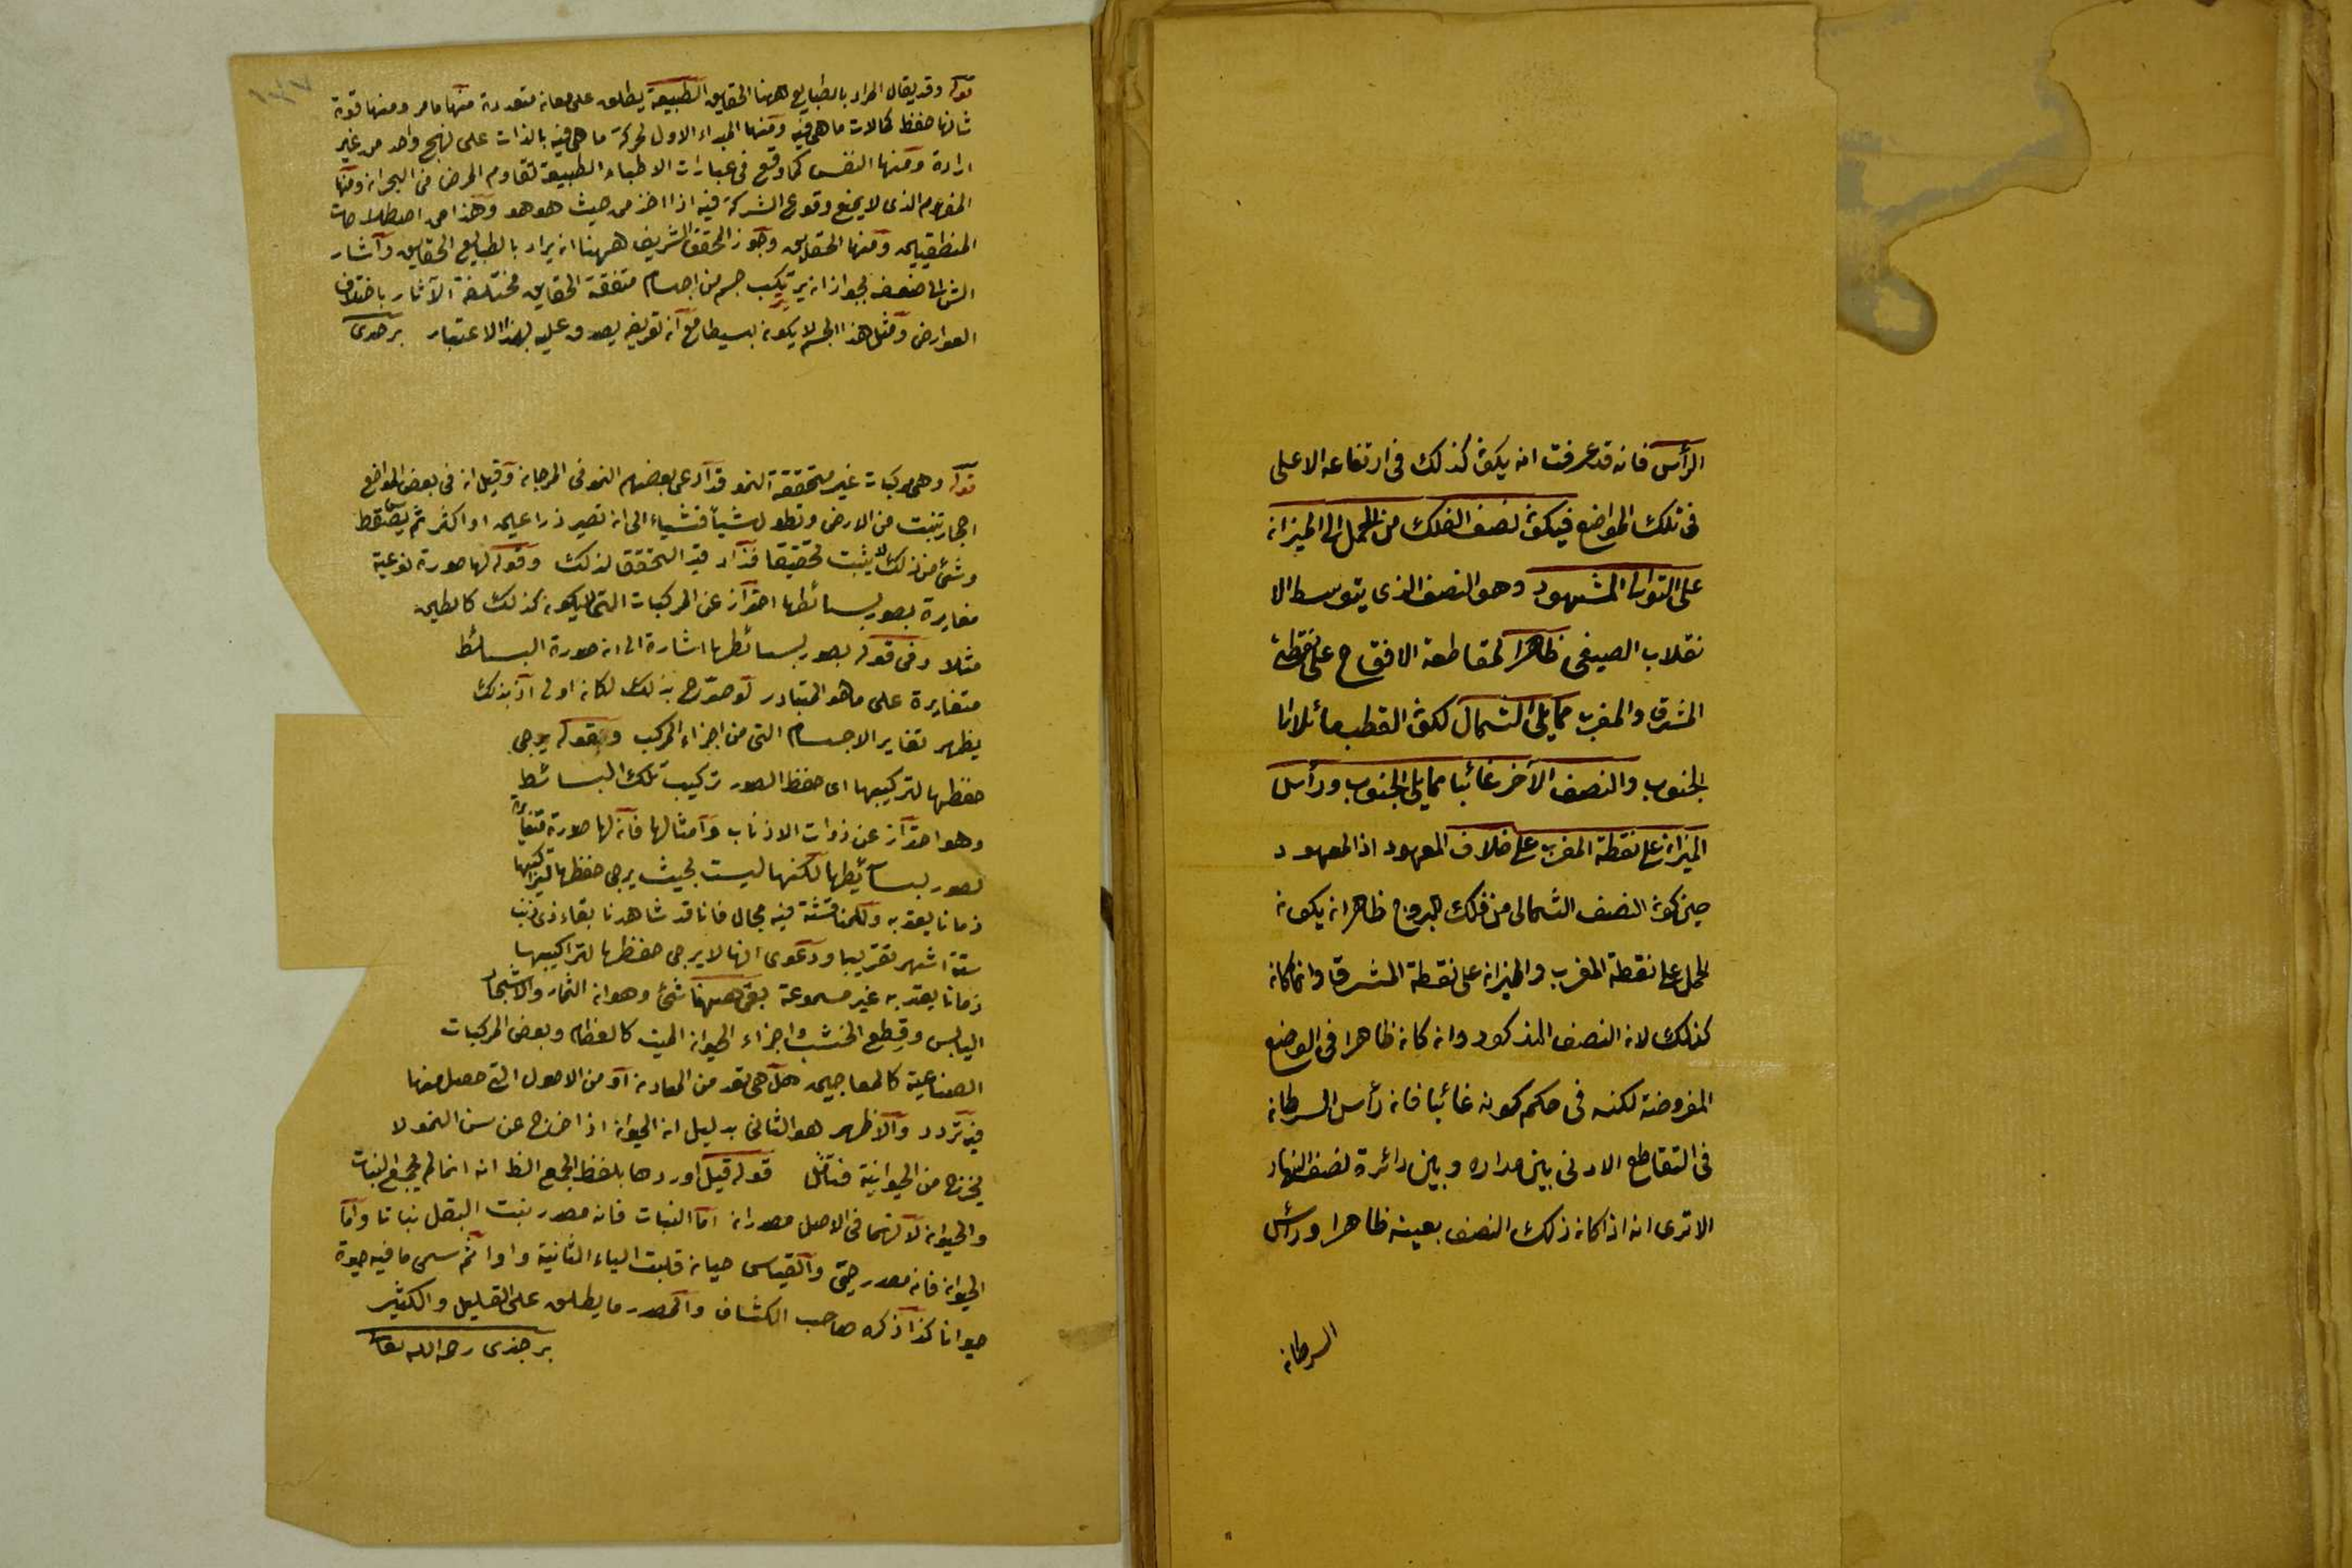 الرأس فانه قد عرفت انه يكون كذلك فى ارتفاعه الاعلى
فى تلك المواضع فيكون نصف الفلك من الحمل الى الميزان
على التوالى المشهور وهو النصف الذى يتوسط الا
نقلاب الصيفى ظاهرا لمقاطعة الافق ح على نقطة
المشرق والمغرب مما يلى الشمال لكون القطب مائلا الى
الجنوب والنصف الآخر غائبا مما يلى الجنوب ورأس
الميزان على نقطة المغرب على خلاف المعهود اذ المعهود
حين كون النصف الشمالى من فلك البروج ظاهرا ان يكون
الحمل على نقطة المغرب والميزان على نقطة المشرق وانما كان
كذلك لان النصف المذكور وان كان ظاهرا فى الوضع
المفروضة لكنه فى حكم كونه غائبا فان رأس السرطان
فى التقاطع الادنى بين مداره وبين دائرة نصف النهار
الا ترى انه اذا كان ذلك النصف بعينه ظاهرا ورأس
السرطان
قوله وقد يقال المراد بالطبايع ههنا الحقايق الطبيعة يطلق على معان متعددة منها ما مر ومنها قوة
شانها حفظ كمالات ما هى فيه ومنها المبداء الاول لحركة ما هى فيه بالذات على نهج واحد من غير
ارادة ومنها النفس كما وقع فى عبارات الاطباء الطبيعة تقاوم المرض فى البحران ومنها
المفهوم الذى لا يمنع وقوع الشركة فيه اذا اخذ من حيث هو هو وهذا من اصطلاحات
المنطقيين ومنها الحقايق وجوز المحقق الشريف ههنا ان يراد بالطبايع الحقايق واشار
الش الى ضعفه لجواز ان يتركب جسم من اجسام متفقة الحقايق مختلفة الآثار باختلاف
العوارض ومثل هذا الجسم لا يكون بسيطا مع ان تعريفه يصدق عليه بهذا الاعتبار برجندى
قوله وهى مركبات غير متحققة النمو قد ادعى بعضهم النمو فى المرجان وقيل ان فى بعض المواضع
احجار تنبت من الارض وتطول شيأ فشياء الى ان تصير ذراعين او اكثر ثم يتساقط
وشئ من ذلك لا يثبت تحقيقا فزاد قيد التحقق لذلك وقوله لها صورة نوعية
مغايرة بصور بسائطها احتراز عن المركبات التى لا يكون كذلك كالطين
مثلا وفى قوله بصور بسائطها اشارة الى ان صورة البسائط
متغايرة على ما هو المتبادر لو صرح بذلك لكان اولى اذ بذلك
يظهر تغاير الاجسام التى من اجزاء المركب وبقوله يرجى
حفظها لتركيبها اى حفظ الصور تركيب تلك البسائط
وهو احتراز عن ذوات الاذناب وامثالها فان لها صورة متغايرة
لصور بسائطها لكنها ليست بحيث يرجى حفظها لتراكيبها
زمانا يعتد به وللمناقشة فيه مجال فانا قد شاهدنا بقاء ذى ذنب
ستة اشهر تقريبا ودعوى انها لا يرجى حفظها لتراكيبها
زمانا يعتد به غير مسموعة بقى ههنا شئ وهو ان الثمار والاشجار
اليابس وقطع الخشب واجزاء الحيوان الميت كالعظام وبعض المركبات
الصناعية كالمعاجين هل هى تعد من المعادن او من الاصول التى حصل منها
فيه تردد والاظهر هو الثانى بدليل ان الحيوان اذا خرج عن سن النمو لا
يخرج من الحيوانية فتأمل قوله قيل اوردها بلفظ الجمع الظ انه انما لم يجمع النبات
والحيوان لانهما فى الاصل مصدران اما النبات فانه مصدر نبت البقل نباتا واما
الحيوان فانه مصدر حيى والقياس حيان قلبت الياء الثانية واوا ثم سمى ما فيه حيوة
حيوانا كذا ذكره صاحب الكشاف والمصدر ما يطلق على القليل والكثير
برجندى رحمه الله تعالى